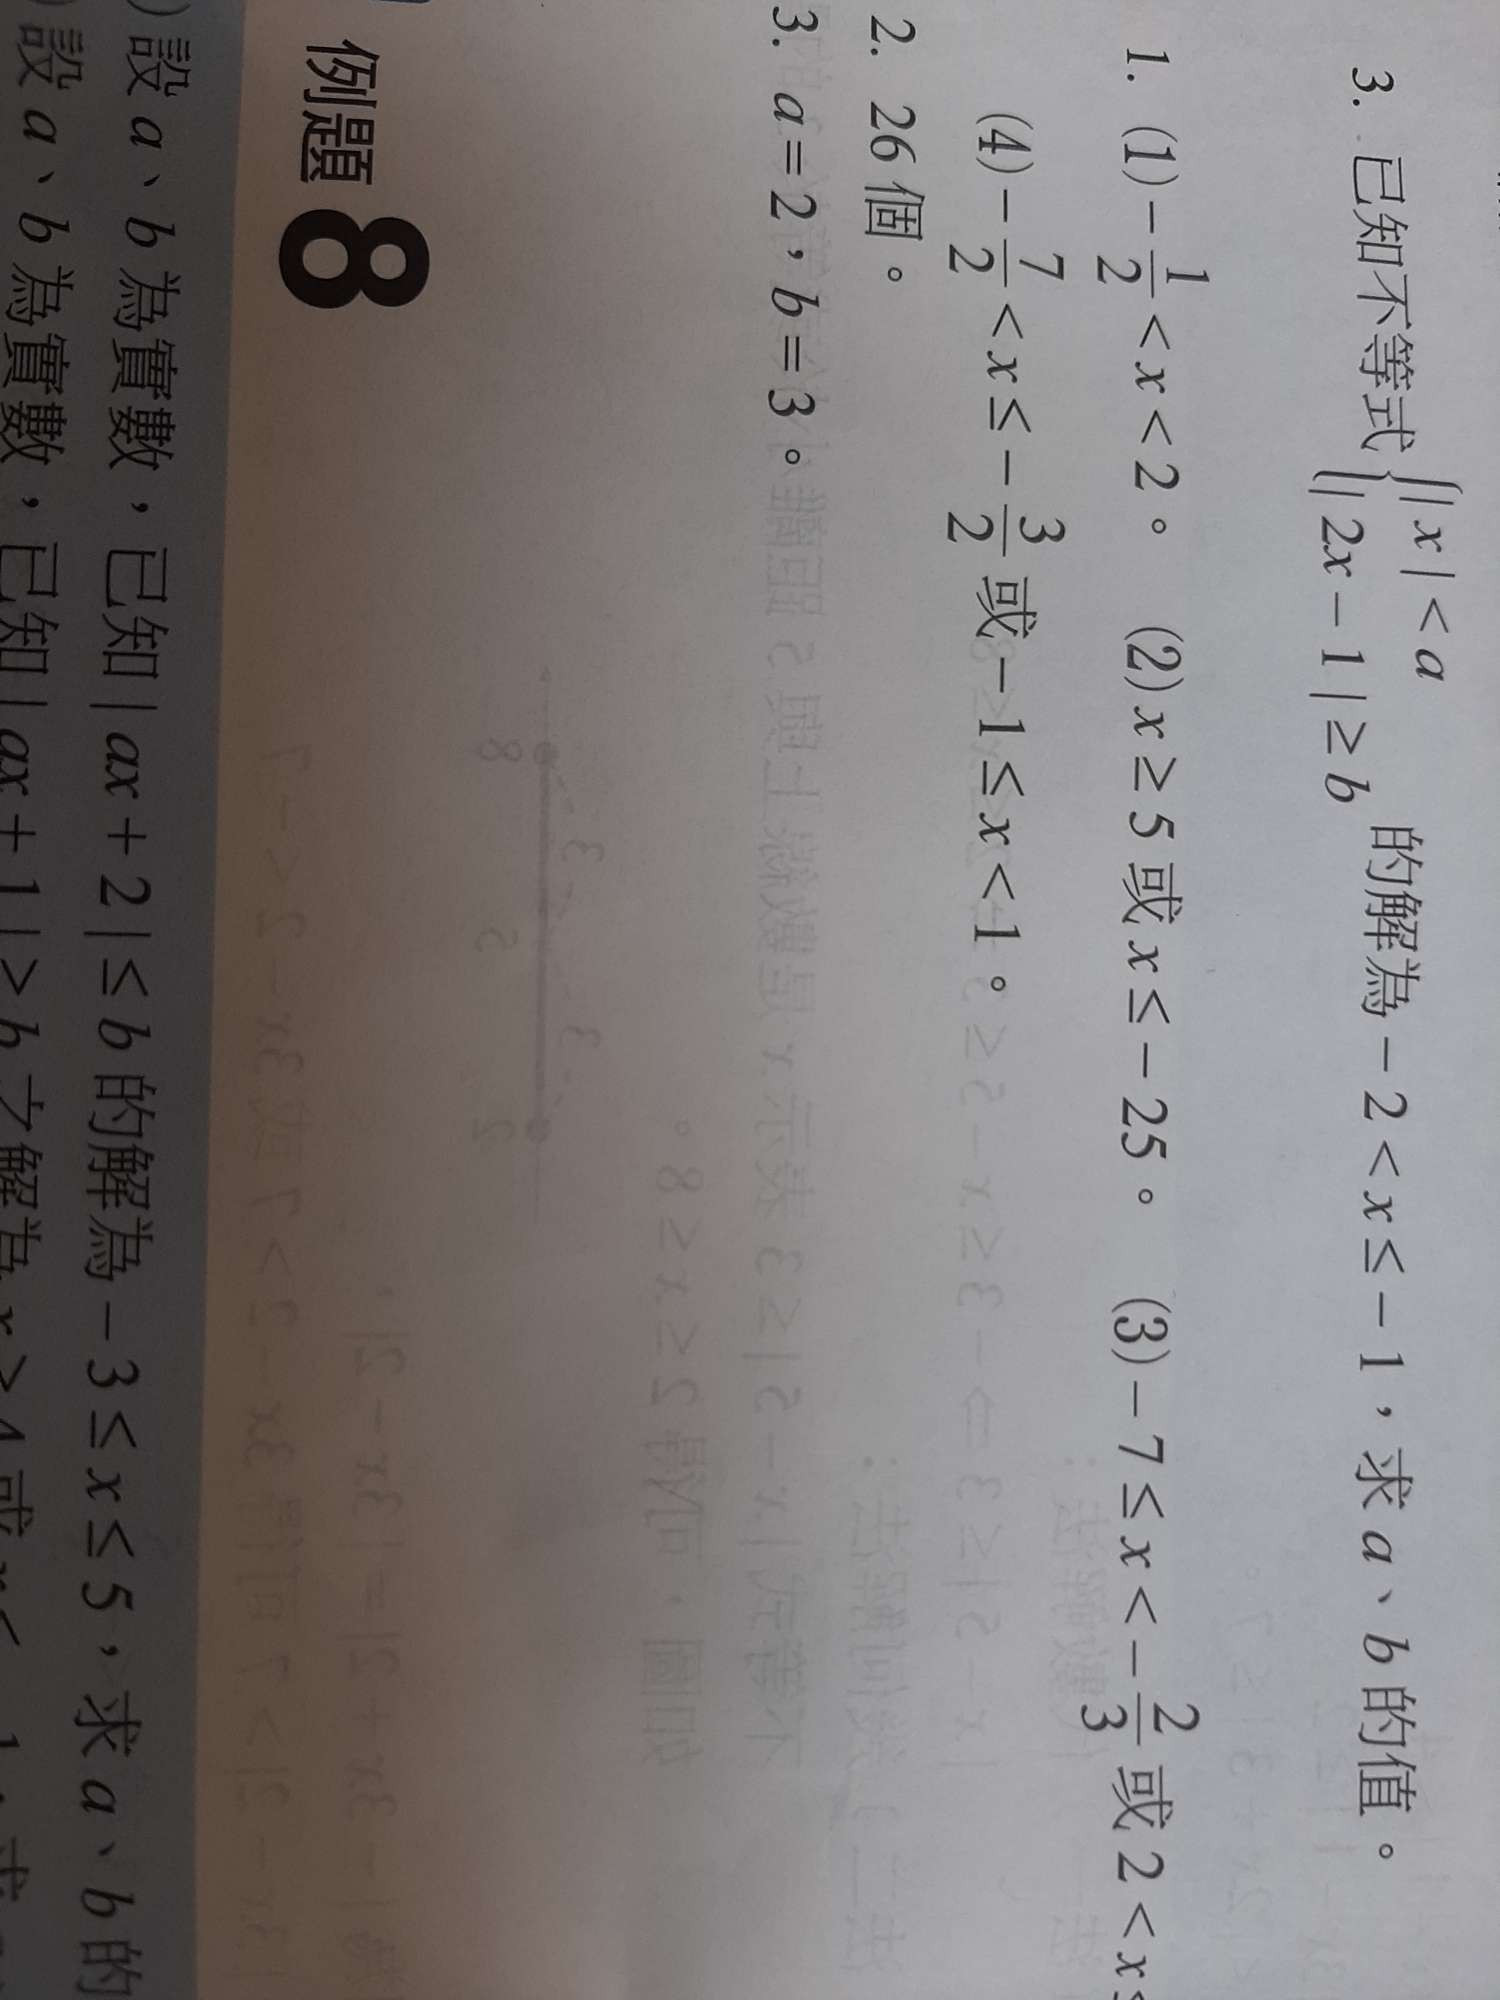 3. 已知不等式{|x|<a
|2x－1|≥b 的解為－2<x≤－1，求 a、b 的值。
1. (1)－1/2<x<2。 (2)x≥5 或 x≤－25。 (3)－7≤x<－2/3 或 2<x≤
(4)－7/2<x≤－3/2 或－1≤x<1。
2. 26 個。
3. a＝2，b＝3。
例題 8
)設 a、b 為實數，已知|ax＋2|≤b 的解為－3≤x≤5，求 a、b 的
)設 a、b 為實數，已知|ax＋1|≥b 之解為 x≥4 或 x≤